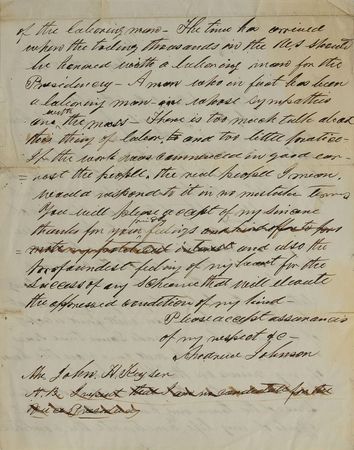 of the laboring man - The time has arrived
when the toiling thousands in the U.S. should
be honored with a laboring man for the
Presidency - A man who in fact has been
a laboring man and whose sympathies
are with the mass - There is too much talk about
this thing of labor, and too little practice -
If the work was commenced in good earnest
the people, the real people I mean,
would respond to it in no mistaken terms
You will please accept of my sincere
thanks for your kind feelings
interest and also the
profoundest feeling of my heart for the
success of any scheme that will elevate
the oppressed condition of my kind -
Please accept assurances
of my respect &c -
Andrew Johnson
Mr John. H. Keyser
N.B. I repeat that I am no candidate for the
Vice Presidency